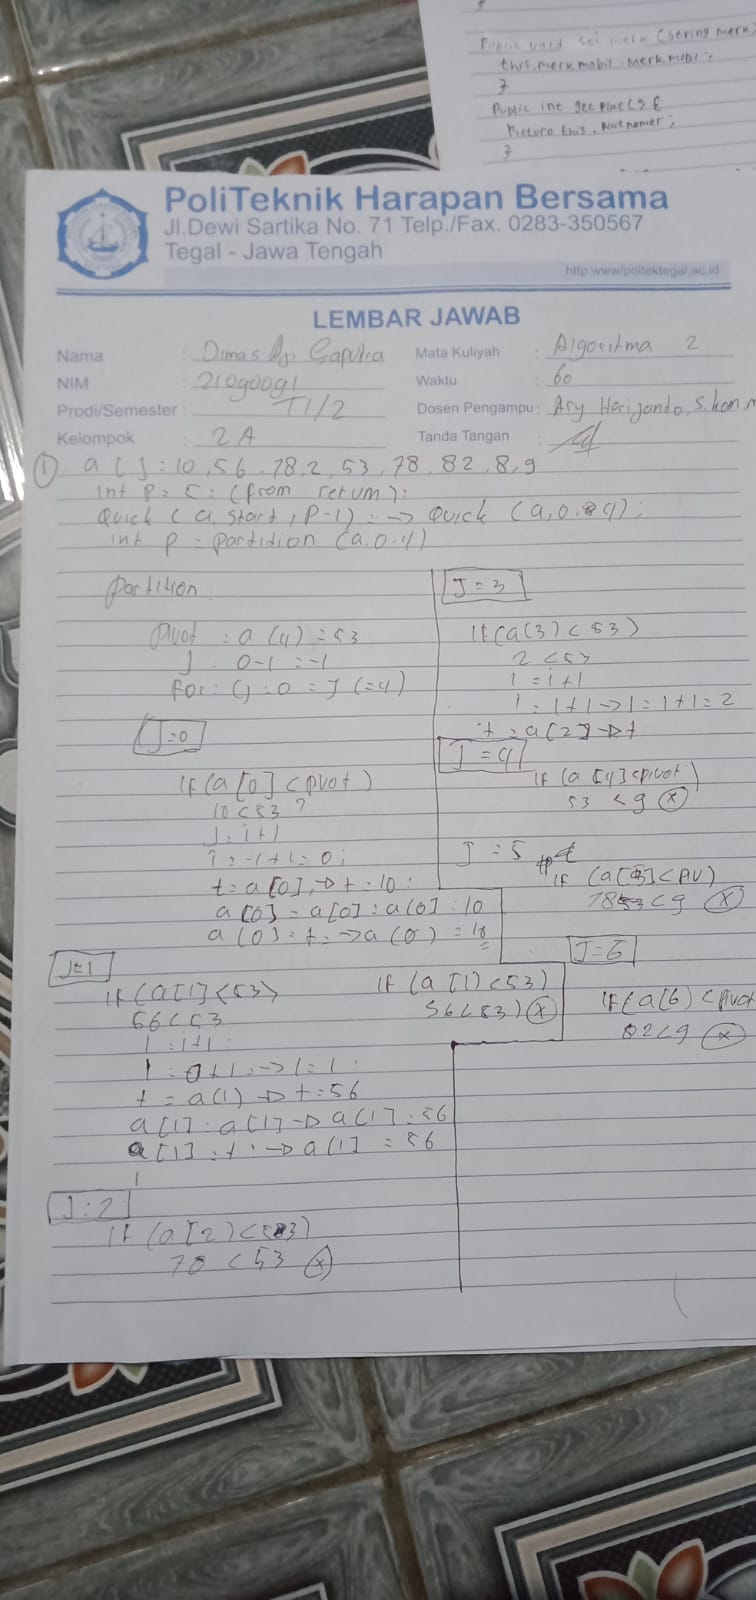 Public void set merk (string merk)
this.merk mobil . merk mobil ;
}
Public int get plat () {
Return this . plat nomer ;
}
PoliTeknik Harapan Bersama
Jl.Dewi Sartika No. 71 Telp./Fax. 0283-350567
Tegal - Jawa Tengah
http:www/poltektegal.ac.id
LEMBAR JAWAB
Nama : Dimas Aji Saputra
NIM : 21090091
Prodi/Semester : TI/2
Kelompok : 2A
Mata Kuliyah : Algoritma 2
Waktu : 60
Dosen Pengampu : Ary Herijanto, S.kom, M
Tanda Tangan :
① a[] : 10, 56, 78, 2, 53, 78, 82, 8, 9
int p = 5 ; (from return) ;
Quick (a, start, P-1) ; -> Quick (a, 0, 4) ;
int p = Partition (a, 0, 4)
Partition
Pivot = a (4) = 53
J : 0-1 = -1
For : (j : 0 = J <=4)
J=0
if (a [0] < pivot)
10 < 53 ?
J : i+1
i = -1+1 = 0 ;
t = a [0], -> t = 10 ;
a [0] = a[0] : a(0) : 10
a (0) : t : -> a (0) = 10
J=1
if (a[1] < 53)
56 < 53
i : i+1
i : 0+1 : -> i = 1 ;
t = a(1) -> t = 56
a[1] : a[1] -> a[1] : 56
a [1] : t : -> a[1] = 56
J : 2
if (a [2] < 53)
78 < 53 ⓧ
J = 3
if (a(3) < 53)
2 < 53
i = i+1
i : 1+1 -> i = 1+1 = 2
t = a[2] -> t
J = 4
if (a [4] < pivot)
53 < 9 ⓧ
J = 5
if (a[5] < PIV)
78 < 9 ⓧ
if (a [1] < 53)
56 < 53) ⓧ
J=6
if (a[6] < pivot
82 < 9 ⓧ